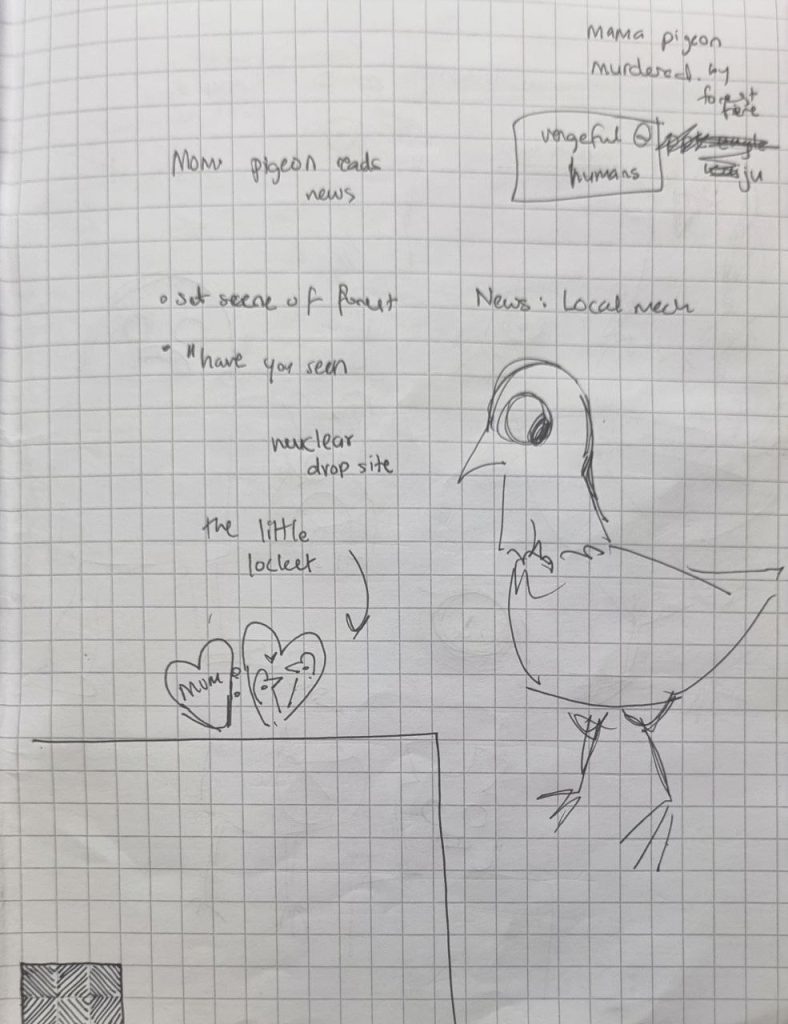 mama pigeon
murdered by
forest
fire
vengeful
humans
ju
Mom pigeon reads
news
set scene of forest
News: Local mech
"have you seen
nuclear
drop site
the little
locket
Mom